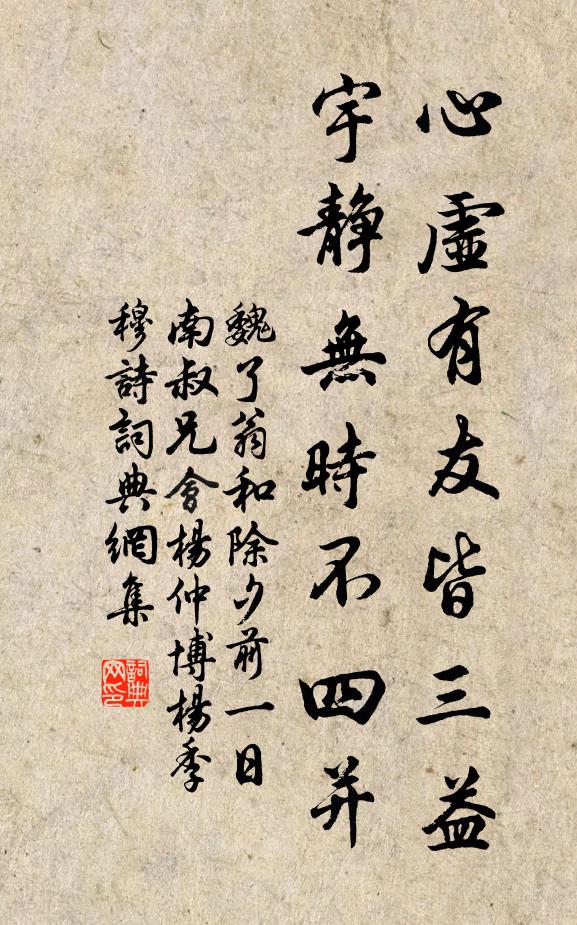 心虛有友皆三益
宇靜無時不四并
魏了翁和除夕前一日
南叔兄會楊仲博楊季
穆詩詞典網集
詞典
网印